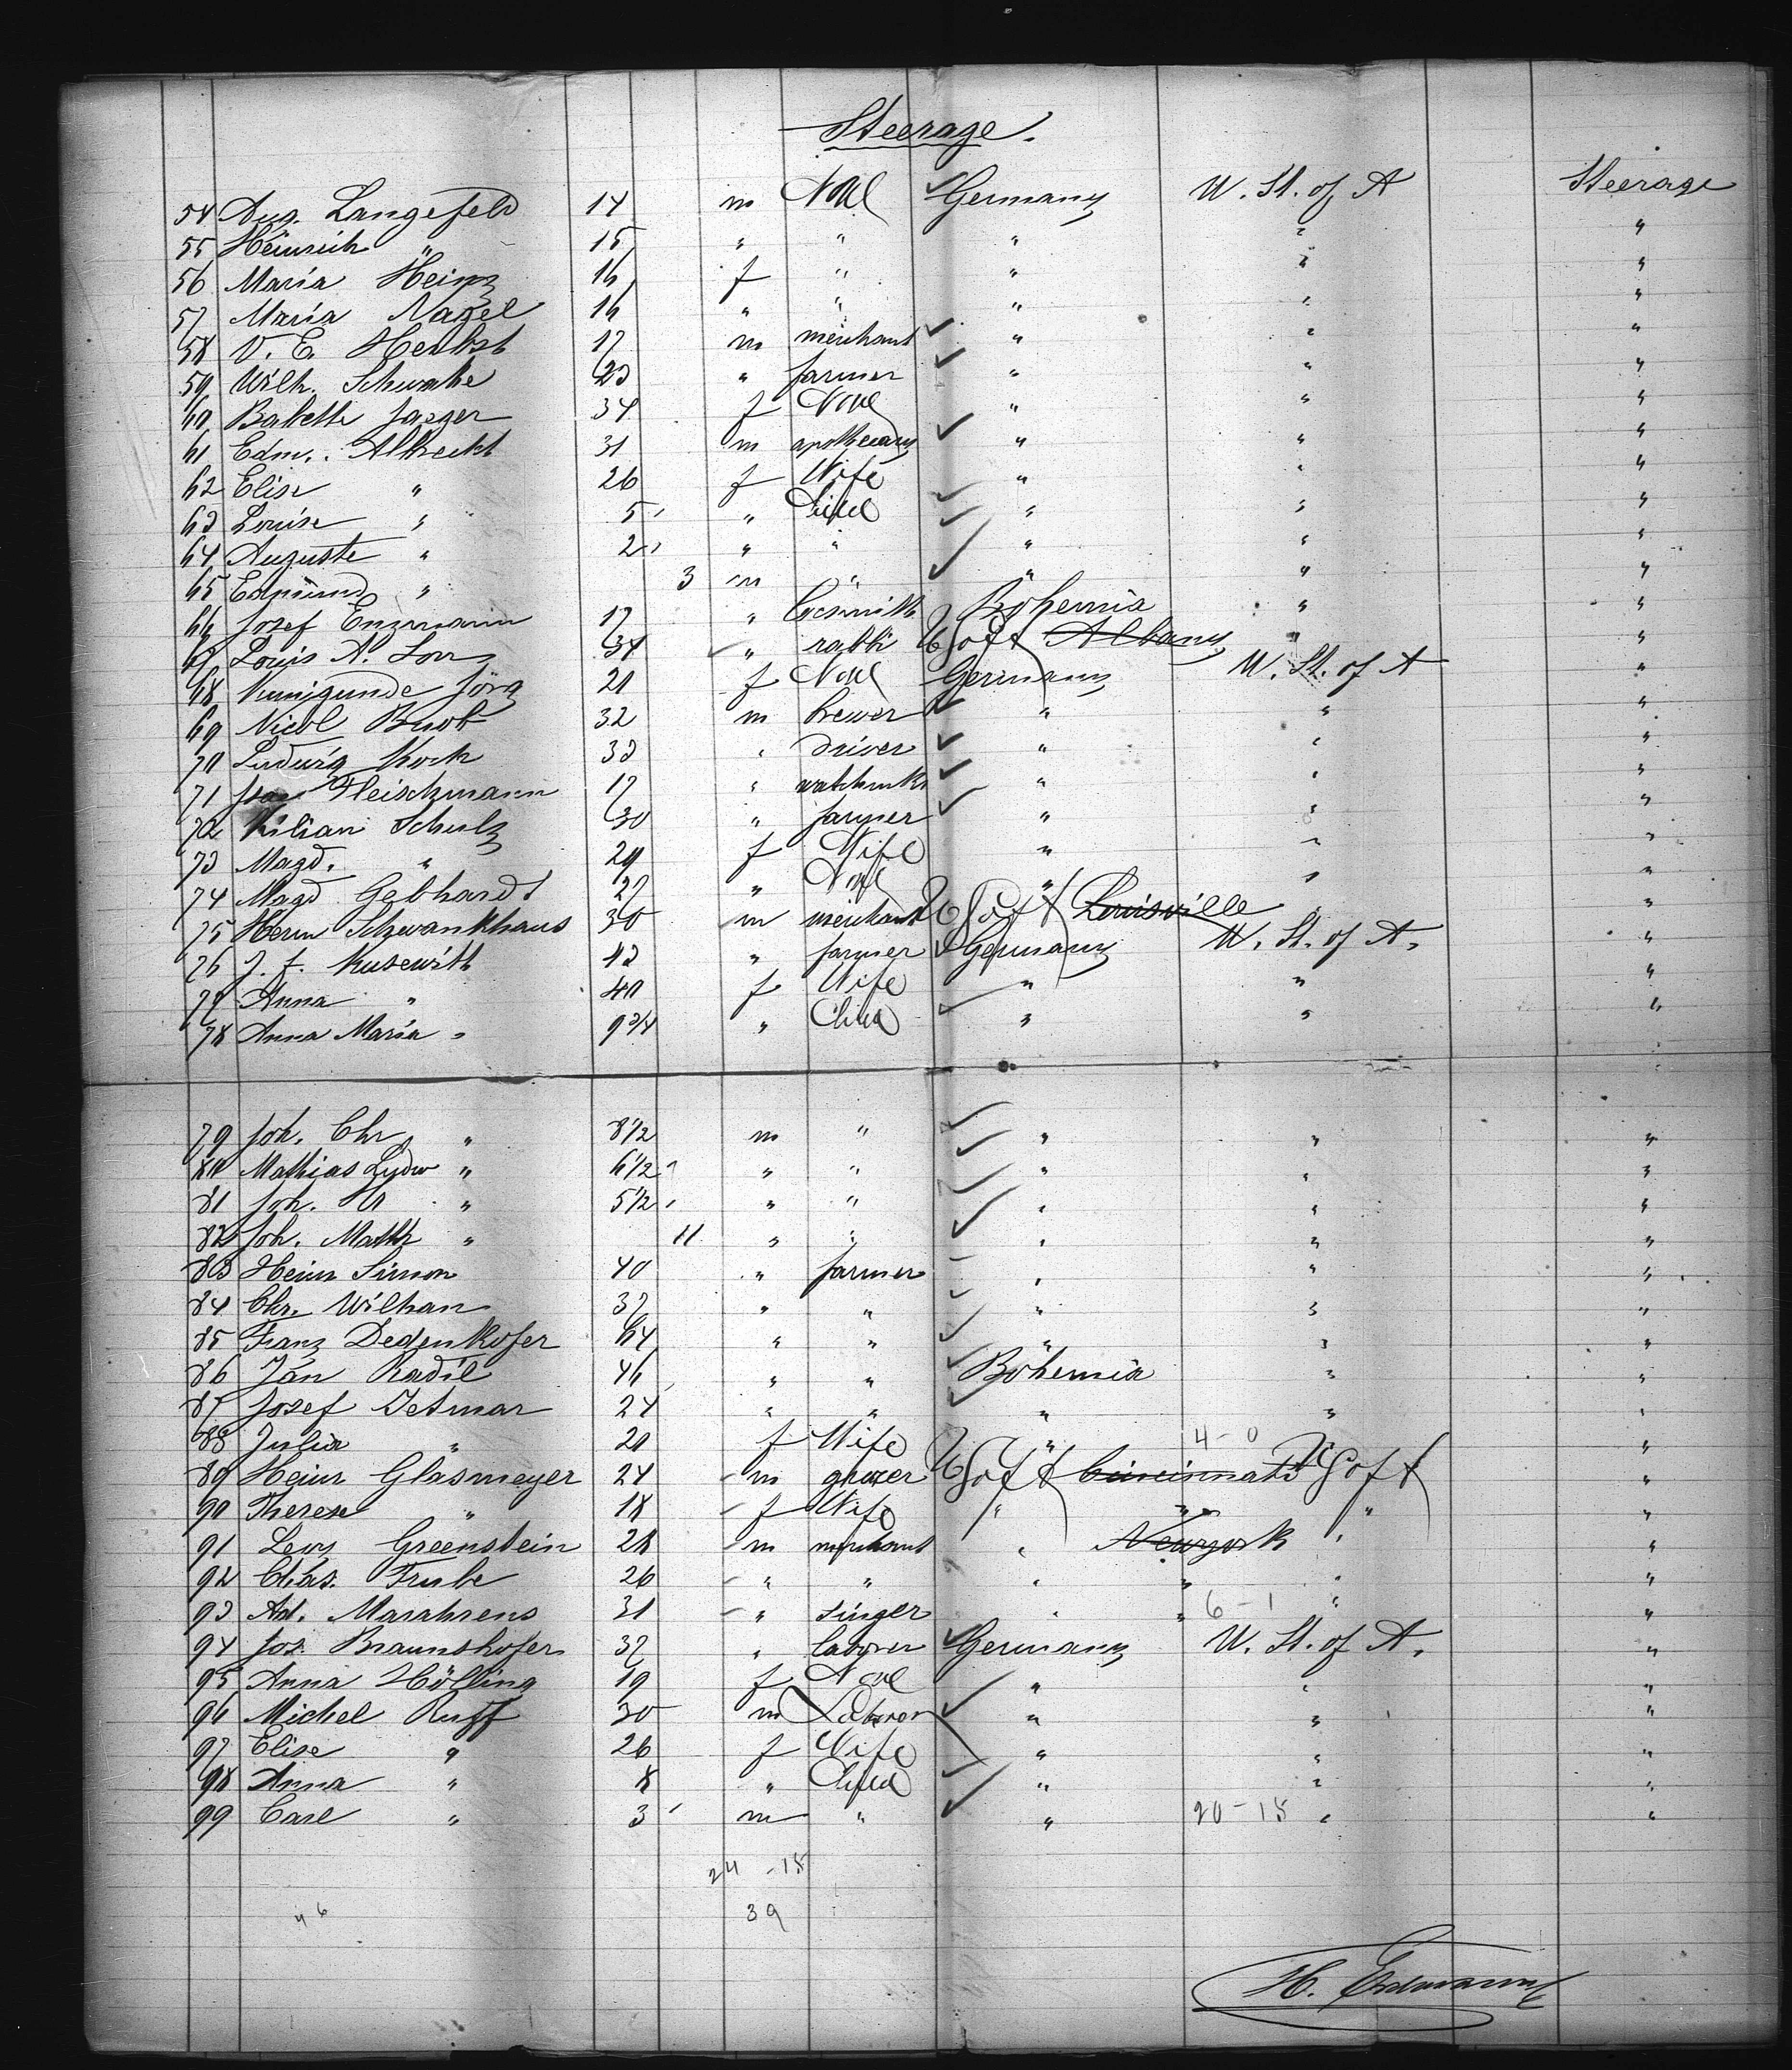 Steerage.
54 Aug. Langefeld 14 m None Germany U. St. of A Steerage
55 Heinrich " 15 " " " " "
56 Maria Heinz 16 f " " " "
57 Maria Nagel 16 " " " " "
58 V. E. Herbst 17 m merchant " " "
59 Wilh. Schwake 23 " farmer " " "
60 Babette Jaeger 34 f None " " "
61 Edm. Albrecht 31 m apothecary " " "
62 Elise " 26 f Wife " " "
63 Louise " 5 " Child " " "
64 Auguste " 2 " " " " "
65 Edmund " 3 m " " " "
66 Josef Enzmann 17 " locsmith Bohemia " "
67 Louis A. 34 " rabbi U S of A Albany " "
68 Kunigunde Jörg 21 f None Germany U. St. of A "
69 Nicol 32 m brewer " " "
70 Ludwig Koch 33 " driver " " "
71 Fleischmann 17 " " " "
72 Kilian Schulz 30 " farmer " " "
73 Magd. " 29 f Wife " " "
74 Magd Gebhardt 27 " None " " "
75 Herm Schwankhaus 30 m merchant U S of A Louisville " "
76 J. F. Kusewitt 43 " farmer Germany U. St. of A. "
77 Anna " 40 f Wife " " "
78 Anna Maria " 9 3/4 " Child " " "
79 Joh. Chr " 8 1/2 m " " " "
80 Mathias Ludw " 6 1/2 " " " " "
81 Joh. " 5 1/2 " " " " "
82 Joh. Math " 11 " " " " "
83 Heinr Simon 40 " farmer " " "
84 Chr. Wilhan 37 " " " " "
85 Franz Dedenkofer 64 " " " " "
86 Ján Radil 46 " " Bohemia " "
87 Josef Jetmar 24 " " " " "
88 Julia " 21 f Wife " 4 - 0 "
89 Heinr Glasmeyer 24 m grocer U S of A Cincinnati U S of A "
90 Therese " 18 f Wife " " " "
91 Levy Greenstein 28 m merchant " Newyork " "
92 Chas. Frube 26 " " " " " "
93 Ad. Marahrens 31 " singer " " 6 - 1 " "
94 Jos. Braunshofer 37 " laborer Germany U. St. of A. "
95 Anna Hölling 19 f None " " "
96 Michel Ruff 30 m Laborer " " "
97 Elise " 26 f Wife " " "
98 Anna " 8 " Child " " "
99 Carl " 3 m " " 20 - 15 " "
24 - 15
46 39
H. Erdmann